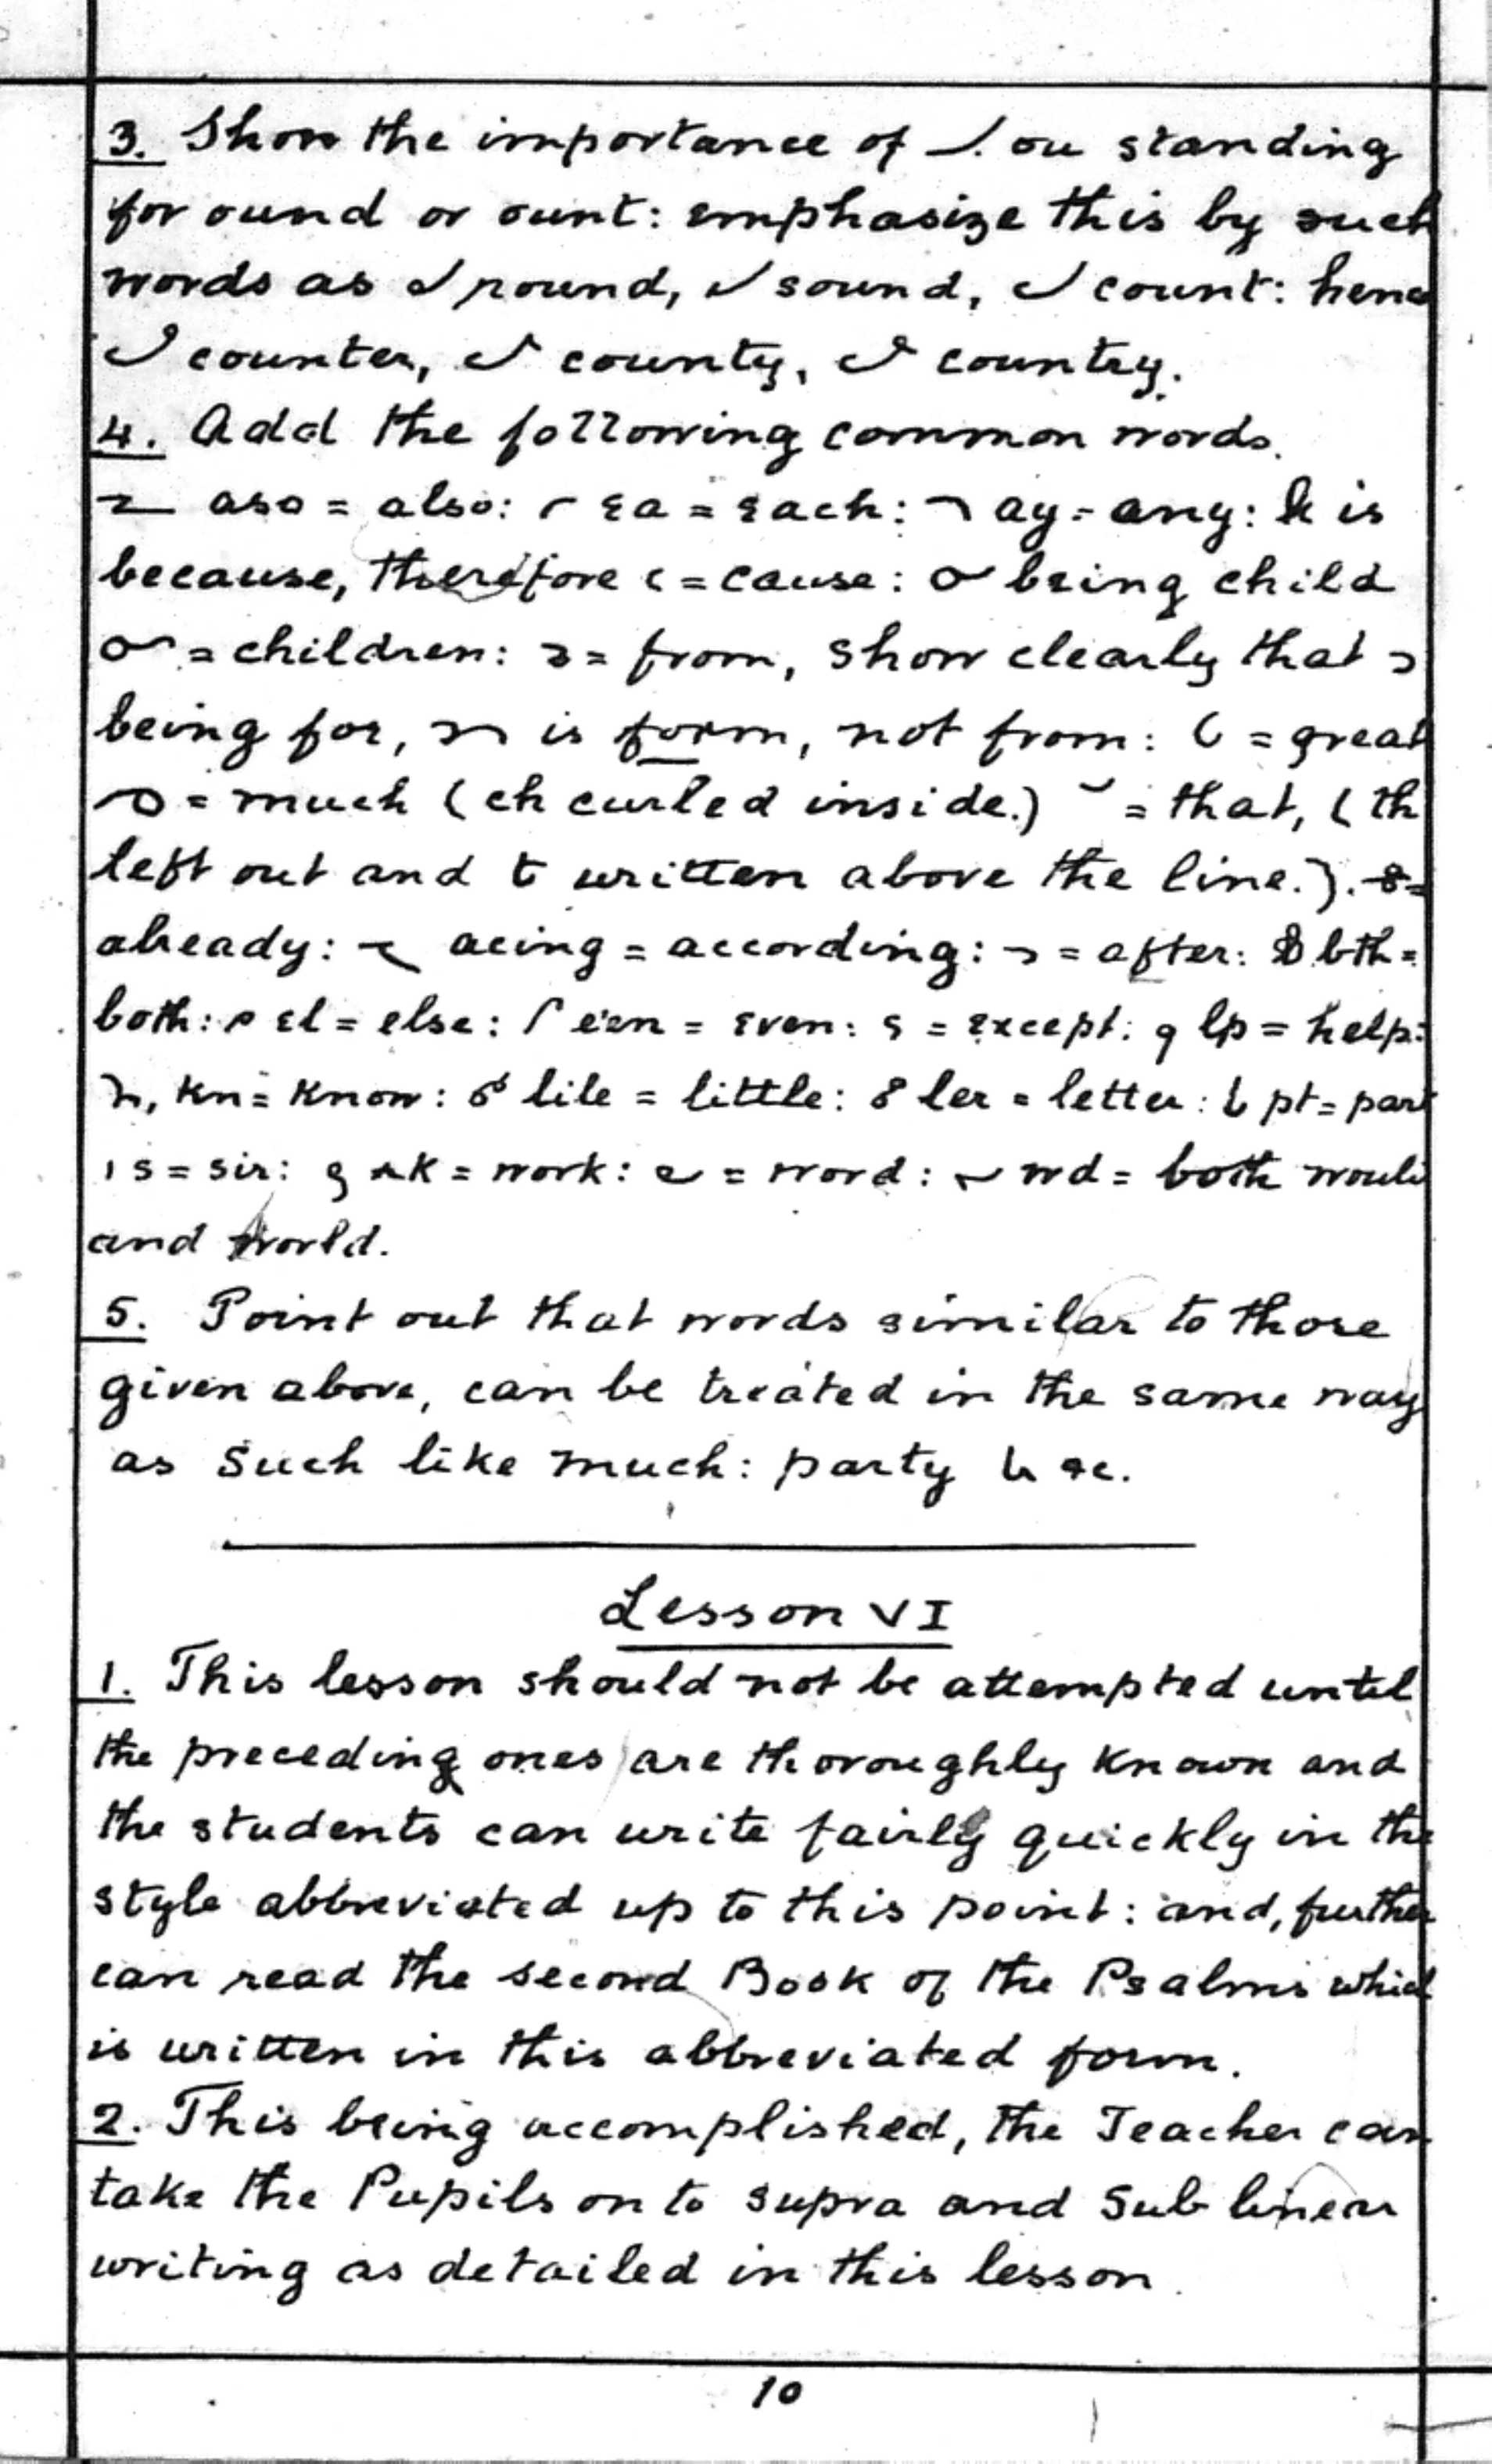 3. Show the importance of ou standing
for ound or ount: emphasize this by such
words as round, sound, count: henc
counter, county, country.
4. Add the following common words.
aso = also: ea = each: ay = any: is
because, therefore c = cause: being child
= children: = from, show clearly that
being for, is form, not from: = great
= much (ch curled inside.) = that, (th
left out and t written above the line.). =
already: acing = according: = after: bth =
both: el = else: e'en = even: = except: lp = help:
kn = know: litle = little: ler = letter: pt = part
s = sir: wk = work: = word: wd = both would
and world.
5. Point out that words similar to those
given above, can be treated in the same way
as such like much: party &c.
Lesson VI
1. This lesson should not be attempted until
the preceding ones are thoroughly known and
the students can write fairly quickly in the
style abbreviated up to this point: and, further
can read the second Book of the Psalms which
is written in this abbreviated form.
2. This being accomplished, the Teacher can
take the Pupils on to supra and sub linear
writing as detailed in this lesson.
10